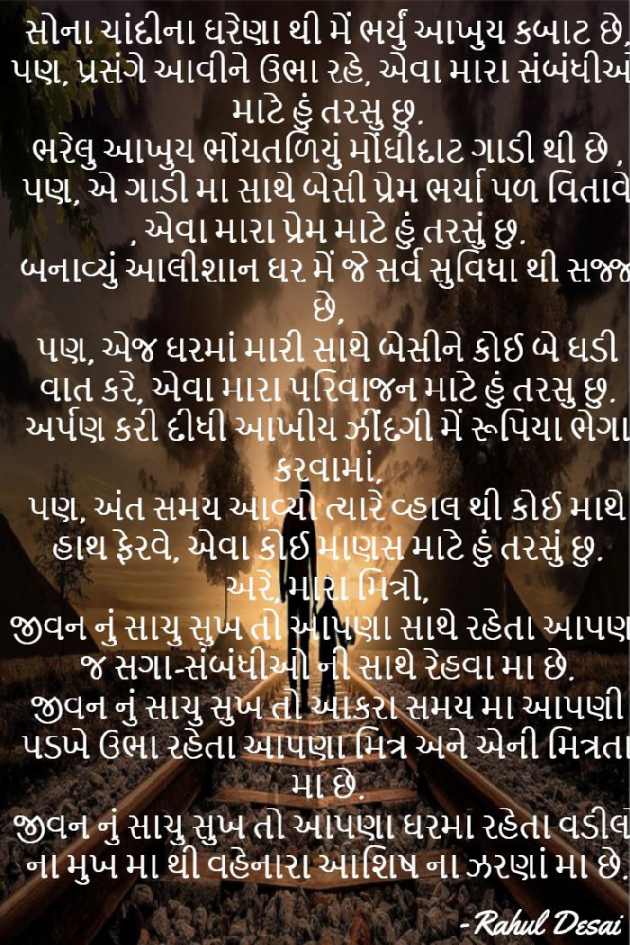 સોના ચાંદીના ઘરેણા થી મેં ભર્યું આખુય કબાટ છે,
પણ, પ્રસંગે આવીને ઉભા રહે, એવા મારા સંબંધીઓ
માટે હું તરસુ છુ.
ભરેલુ આખુય ભોંયતળિયું મોંઘીદાટ ગાડી થી છે ,
પણ, એ ગાડી મા સાથે બેસી પ્રેમ ભર્યા પળ વિતાવે
, એવા મારા પ્રેમ માટે હું તરસું છુ.
બનાવ્યું આલીશાન ઘર મેં જે સર્વ સુવિધા થી સજ્જ
છે,
પણ, એજ ઘરમાં મારી સાથે બેસીને કોઈ બે ઘડી
વાત કરે, એવા મારા પરિવાજન માટે હું તરસુ છુ.
અર્પણ કરી દીધી આખીય ઝીંદગી મેં રૂપિયા ભેગા
કરવામાં,
પણ, અંત સમય આવ્યો ત્યારે વ્હાલ થી કોઈ માથે
હાથ ફેરવે, એવા કોઈ માણસ માટે હું તરસું છુ.
અરે, મારા મિત્રો,
જીવન નું સાચુ સુખ તો આપણા સાથે રહેતા આપણા
જ સગા-સંબંધીઓ ની સાથે રેહવા મા છે.
જીવન નું સાચુ સુખ તો આકરા સમય મા આપણી
પડખે ઉભા રહેતા આપણા મિત્ર અને એની મિત્રતા
મા છે.
જીવન નું સાચુ સુખ તો આપણા ઘરમા રહેતા વડીલો
ના મુખ મા થી વહેનારા આશિષ ના ઝરણાં મા છે.
-Rahul Desai